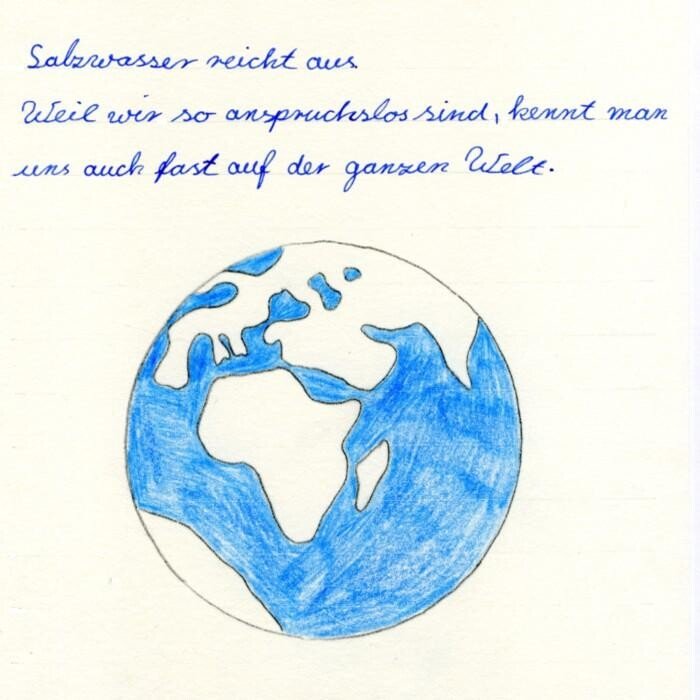 Salzwasser reicht aus.
Weil wir so anspruchslos sind, kennt man
uns auch fast auf der ganzen Welt.